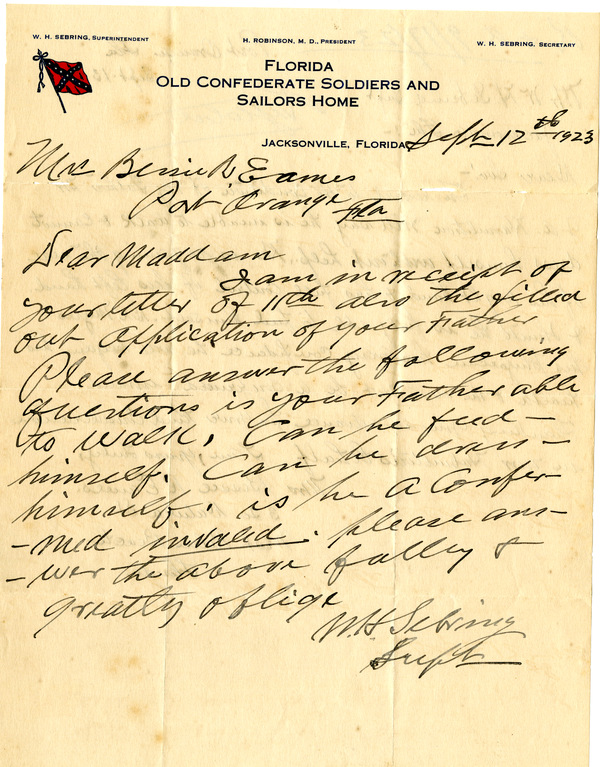 W. H. SEBRING, SUPERINTENDENT
H. ROBINSON, M. D., PRESIDENT
W. H. SEBRING, SECRETARY
FLORIDA
OLD CONFEDERATE SOLDIERS AND
SAILORS HOME
JACKSONVILLE, FLORIDA, Sept 12th 1923
Mrs Bessie R Eames
Port Orange Fla
Dear Maddam
I am in receipt of
your letter of 11th also the filled
out application of your Father
Please answer the following
questions is your Father able
to walk. Can he feed-
himself. Can he dress-
himself. is he a Confer-
-med invaled. please ans-
-wer the above fulley &
greatly oblige
W H Sebring
Supt